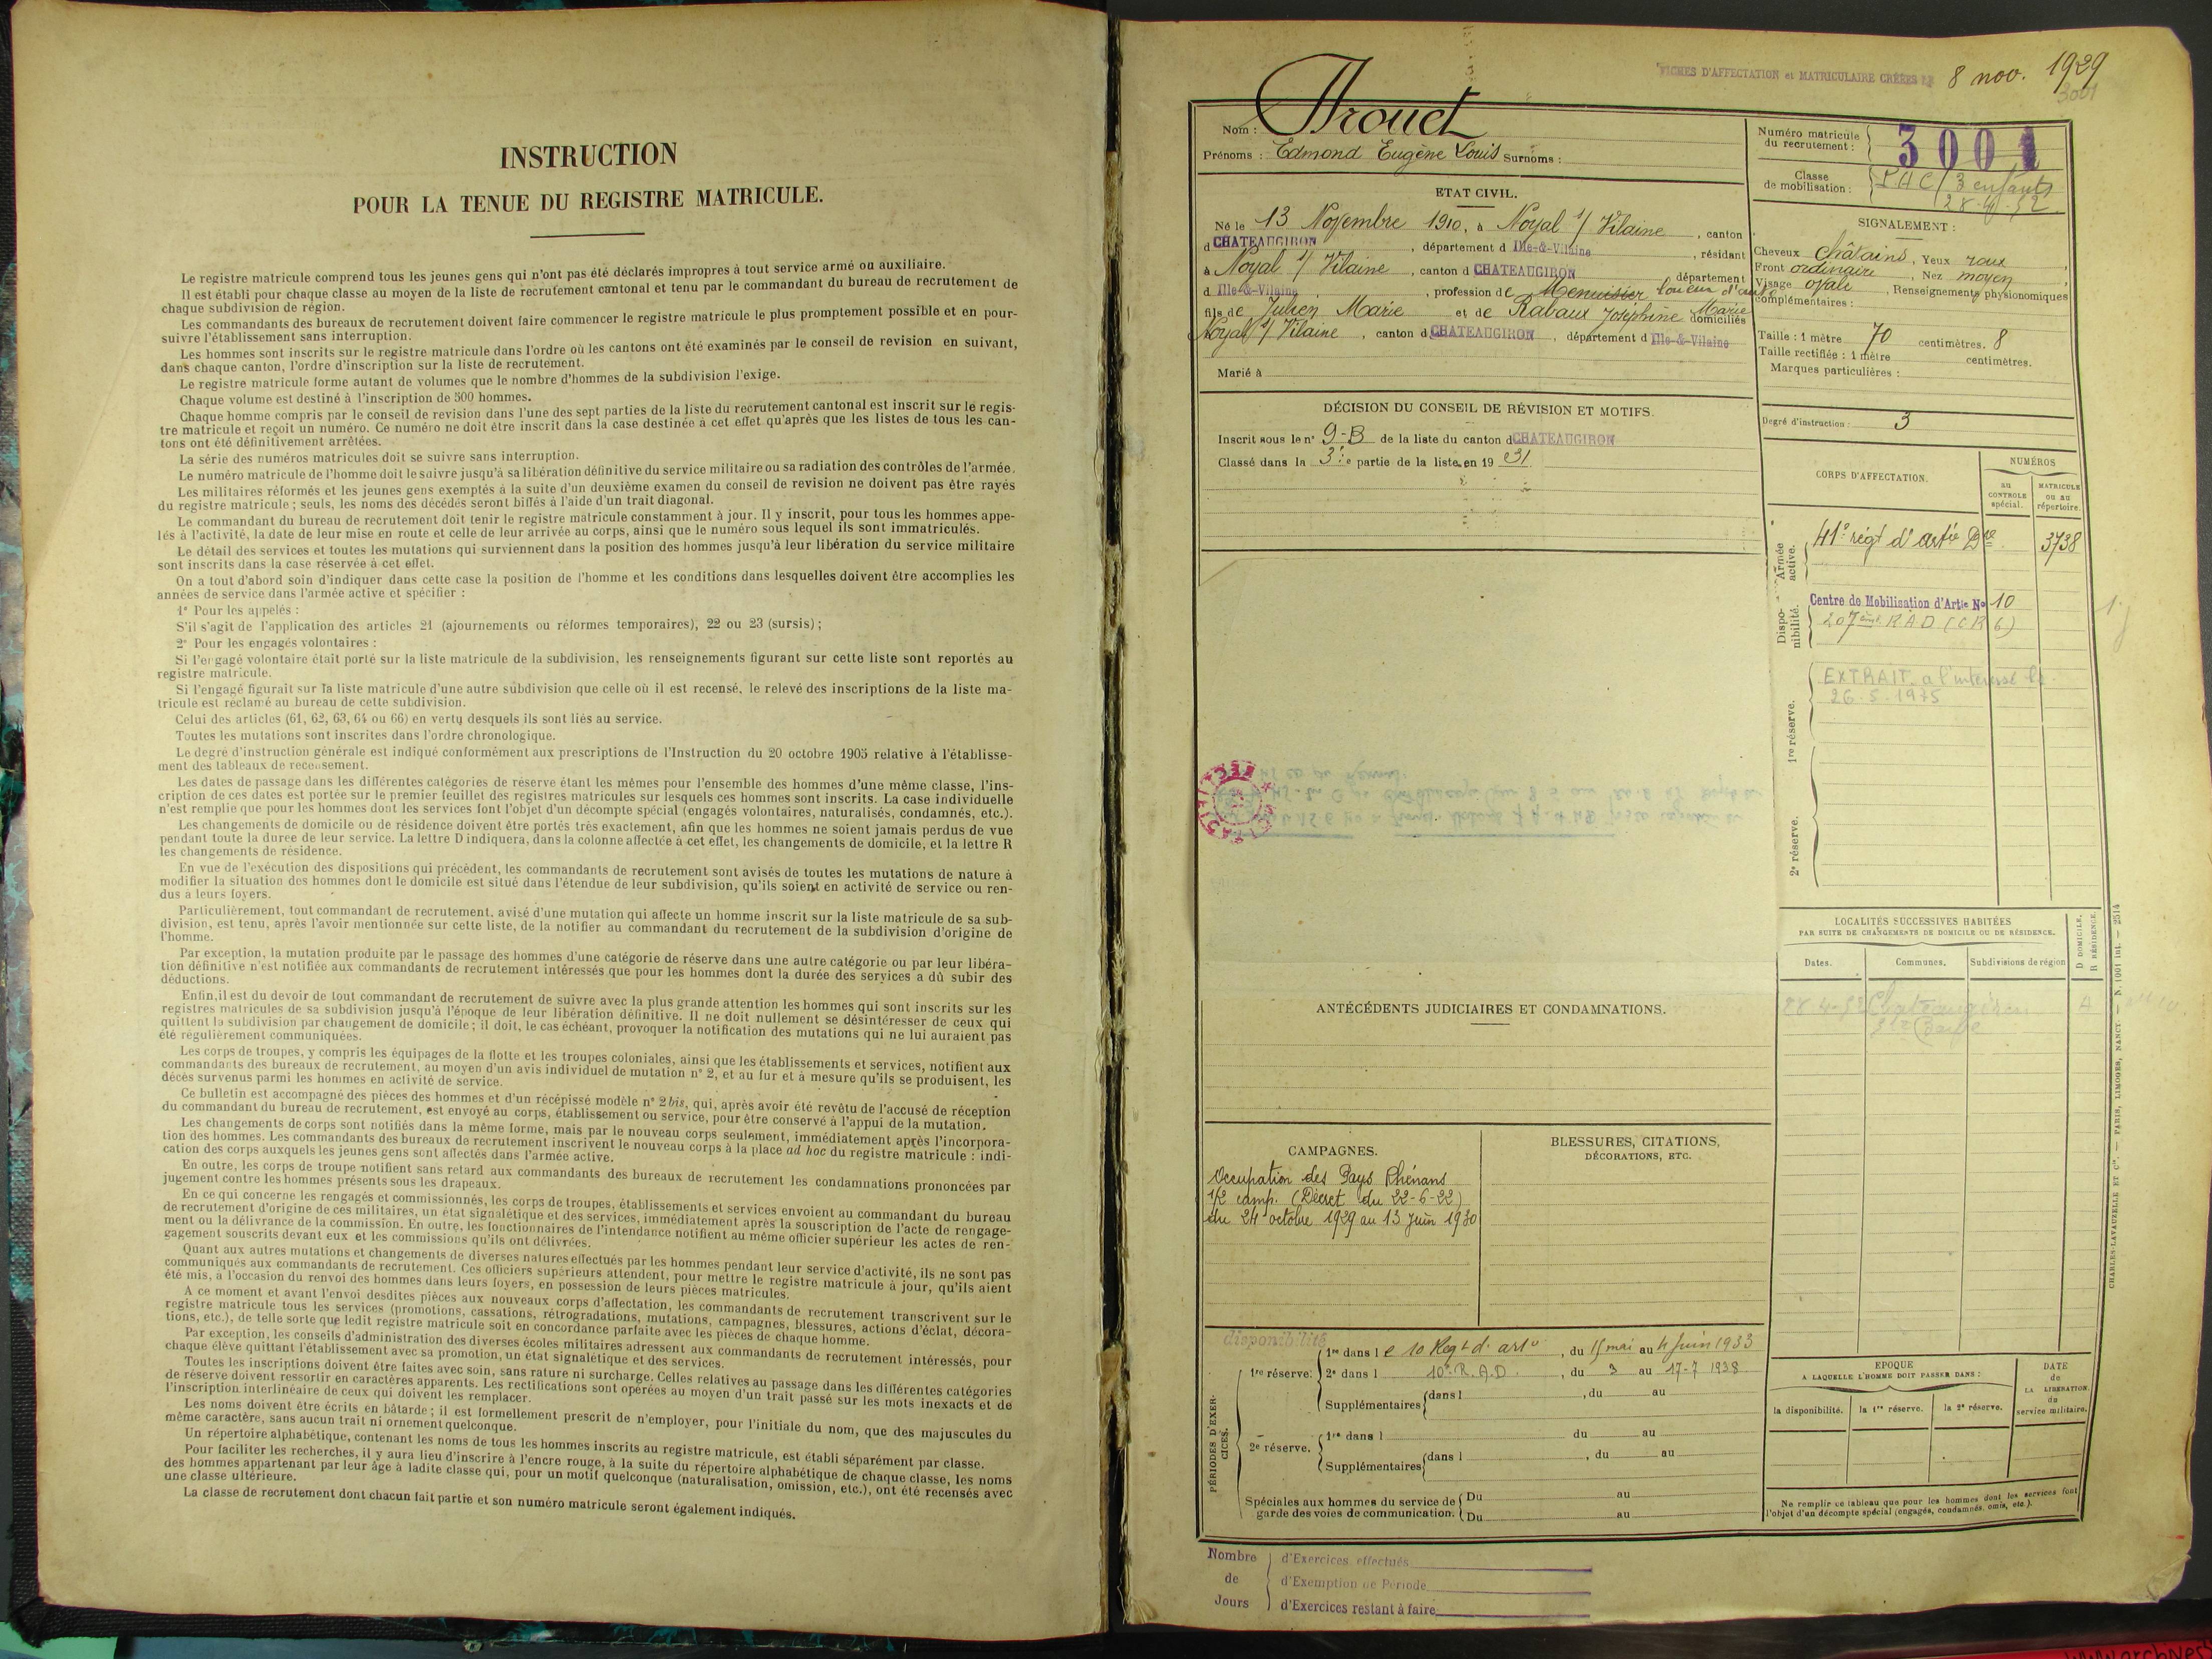 INSTRUCTION
POUR LA TENUE DU REGISTRE MATRICULE.
Le registre matricule comprend tous les jeunes gens qui n'ont pas été déclarés impropres à tout service armé ou auxiliaire.
Il est établi pour chaque classe au moyen de la liste de recrutement cantonal et tenu par le commandant du bureau de recrutement de
chaque subdivision de région.
Les commandants des bureaux de recrutement doivent faire commencer le registre matricule le plus promptement possible et en pour-
suivre l'établissement sans interruption.
Les hommes sont inscrits sur le registre matricule dans l'ordre où les cantons ont été examinés par le conseil de revision en suivant,
dans chaque canton, l'ordre d'inscription sur la liste de recrutement.
Le registre matricule forme autant de volumes que le nombre d'hommes de la subdivision l'exige.
Chaque volume est destiné à l'inscription de 500 hommes.
Chaque homme compris par le conseil de revision dans l'une des sept parties de la liste du recrutement cantonal est inscrit sur le regis-
tre matricule et reçoit un numéro. Ce numéro ne doit être inscrit dans la case destinée à cet effet qu'après que les listes de tous les can-
tons ont été définitivement arrêtées.
La série des numéros matricules doit se suivre sans interruption.
Le numéro matricule de l'homme doit le suivre jusqu'à sa libération définitive du service militaire ou sa radiation des contrôles de l'armée.
Les militaires réformés et les jeunes gens exemptés à la suite d'un deuxième examen du conseil de revision ne doivent pas être rayés
du registre matricule ; seuls, les noms des décédés seront biffés à l'aide d'un trait diagonal.
Le commandant du bureau de recrutement doit tenir le registre matricule constamment à jour. Il y inscrit, pour tous les hommes appe-
lés à l'activité, la date de leur mise en route et celle de leur arrivée au corps, ainsi que le numéro sous lequel ils sont immatriculés.
Le détail des services et toutes les mutations qui surviennent dans la position des hommes jusqu'à leur libération du service militaire
sont inscrits dans la case réservée à cet effet.
On a tout d'abord soin d'indiquer dans cette case la position de l'homme et les conditions dans lesquelles doivent être accomplies les
années de service dans l'armée active et spécifier :
1° Pour les appelés :
S'il s'agit de l'application des articles 21 (ajournements ou réformes temporaires), 22 ou 23 (sursis) ;
2° Pour les engagés volontaires :
Si l'engagé volontaire était porté sur la liste matricule de la subdivision, les renseignements figurant sur cette liste sont reportés au
registre matricule.
Si l'engagé figurait sur la liste matricule d'une autre subdivision que celle où il est recensé, le relevé des inscriptions de la liste ma-
tricule est réclamé au bureau de cette subdivision.
Celui des articles (61, 62, 63, 64 ou 66) en vertu desquels ils sont liés au service.
Toutes les mutations sont inscrites dans l'ordre chronologique.
Le degré d'instruction générale est indiqué conformément aux prescriptions de l'Instruction du 20 octobre 1905 relative à l'établisse-
ment des tableaux de recensement.
Les dates de passage dans les différentes catégories de réserve étant les mêmes pour l'ensemble des hommes d'une même classe, l'ins-
cription de ces dates est portée sur le premier feuillet des registres matricules sur lesquels ces hommes sont inscrits. La case individuelle
n'est remplie que pour les hommes dont les services font l'objet d'un décompte spécial (engagés volontaires, naturalisés, condamnés, etc.).
Les changements de domicile ou de résidence doivent être portés très exactement, afin que les hommes ne soient jamais perdus de vue
pendant toute la durée de leur service. La lettre D indiquera, dans la colonne affectée à cet effet, les changements de domicile, et la lettre R
les changements de résidence.
En vue de l'exécution des dispositions qui précèdent, les commandants de recrutement sont avisés de toutes les mutations de nature à
modifier la situation des hommes dont le domicile est situé dans l'étendue de leur subdivision, qu'ils soient en activité de service ou ren-
dus à leurs foyers.
Particulièrement, tout commandant de recrutement, avisé d'une mutation qui affecte un homme inscrit sur la liste matricule de sa sub-
division, est tenu, après l'avoir mentionnée sur cette liste, de la notifier au commandant du recrutement de la subdivision d'origine de
l'homme.
Par exception, la mutation produite par le passage des hommes d'une catégorie de réserve dans une autre catégorie ou par leur libéra-
tion définitive n'est notifiée aux commandants de recrutement intéressés que pour les hommes dont la durée des services a dû subir des
déductions.
Enfin, il est du devoir de tout commandant de recrutement de suivre avec la plus grande attention les hommes qui sont inscrits sur les
registres matricules de sa subdivision jusqu'à l'époque de leur libération définitive. Il ne doit nullement se désintéresser de ceux qui
quittent la subdivision par changement de domicile ; il doit, le cas échéant, provoquer la notification des mutations qui ne lui auraient pas
été régulièrement communiquées.
Les corps de troupes, y compris les équipages de la flotte et les troupes coloniales, ainsi que les établissements et services, notifient aux
commandants des bureaux de recrutement, au moyen d'un avis individuel de mutation n° 2, et au fur et à mesure qu'ils se produisent, les
décès survenus parmi les hommes en activité de service.
Ce bulletin est accompagné des pièces des hommes et d'un récépissé modèle n° 2 bis, qui, après avoir été revêtu de l'accusé de réception
du commandant du bureau de recrutement, est envoyé au corps, établissement ou service, pour être conservé à l'appui de la mutation.
Les changements de corps sont notifiés dans la même forme, mais par le nouveau corps seulement, immédiatement après l'incorpora-
tion des hommes. Les commandants des bureaux de recrutement inscrivent le nouveau corps à la place ad hoc du registre matricule : indi-
cation des corps auxquels les jeunes gens sont affectés dans l'armée active.
En outre, les corps de troupe notifient sans retard aux commandants des bureaux de recrutement les condamnations prononcées par
jugement contre les hommes présents sous les drapeaux.
En ce qui concerne les rengagés et commissionnés, les corps de troupes, établissements et services envoient au commandant du bureau
de recrutement d'origine de ces militaires, un état signalétique et des services, immédiatement après la souscription de l'acte de rengage-
ment ou la délivrance de la commission. En outre, les fonctionnaires de l'intendance notifient au même officier supérieur les actes de ren-
gagement souscrits devant eux et les commissions qu'ils ont délivrées.
Quant aux autres mutations et changements de diverses natures effectués par les hommes pendant leur service d'activité, ils ne sont pas
communiqués aux commandants de recrutement. Ces officiers supérieurs attendent, pour mettre le registre matricule à jour, qu'ils aient
été mis, à l'occasion du renvoi des hommes dans leurs foyers, en possession de leurs pièces matricules.
A ce moment et avant l'envoi desdites pièces aux nouveaux corps d'affectation, les commandants de recrutement transcrivent sur le
registre matricule tous les services (promotions, cassations, rétrogradations, mutations, campagnes, blessures, actions d'éclat, décora-
tions, etc.), de telle sorte que ledit registre matricule soit en concordance parfaite avec les pièces de chaque homme.
Par exception, les conseils d'administration des diverses écoles militaires adressent aux commandants de recrutement intéressés, pour
chaque élève quittant l'établissement avec sa promotion, un état signalétique et des services.
Toutes les inscriptions doivent être faites avec soin, sans rature ni surcharge. Celles relatives au passage dans les différentes catégories
de réserve doivent ressortir en caractères apparents. Les rectifications sont opérées au moyen d'un trait passé sur les mots inexacts et de
l'inscription interlinéaire de ceux qui doivent les remplacer.
Les noms doivent être écrits en bâtarde ; il est formellement prescrit de n'employer, pour l'initiale du nom, que des majuscules du
même caractère, sans aucun trait ni ornement quelconque.
Un répertoire alphabétique, contenant les noms de tous les hommes inscrits au registre matricule, est établi séparément par classe.
Pour faciliter les recherches, il y aura lieu d'inscrire à l'encre rouge, à la suite du répertoire alphabétique de chaque classe, les noms
des hommes appartenant par leur âge à ladite classe qui, pour un motif quelconque (naturalisation, omission, etc.), ont été recensés avec
une classe ultérieure.
La classe de recrutement dont chacun fait partie et son numéro matricule seront également indiqués.
FICHES D'AFFECTATION et MATRICULAIRE CRÉÉES LE 8 nov. 1929
3001
Nom : Arouet
Prénoms : Edmond Eugène Louis Surnoms :
Numéro matricule du recrutement : 3001
Classe de mobilisation : 3 enfants
ETAT CIVIL.
Né le 13 Novembre 1910, à Noyal s/ Vilaine, canton
d CHATEAUGIRON, département d Ille-&-Vilaine, résidant
à Noyal s/ Vilaine, canton d CHATEAUGIRON, département
d Ille-&-Vilaine, profession de Menuisier loueur d'auto
fils de Julien Marie et de Rabaux Joséphine Marie domiciliés
Noyal s/ Vilaine, canton d CHATEAUGIRON, département d Ille-&-Vilaine
Marié à
SIGNALEMENT :
Cheveux châtains, Yeux roux,
Front ordinaire, Nez moyen,
Visage ovale, Renseignements physionomiques
complémentaires :
Taille : 1 mètre 70 centimètres. 8
Taille rectifiée : 1 mètre centimètres.
Marques particulières :
Degré d'instruction : 3
DÉCISION DU CONSEIL DE RÉVISION ET MOTIFS.
Inscrit sous le n° 9-B de la liste du canton d CHATEAUGIRON
Classé dans la 3e partie de la liste en 1931
CORPS D'AFFECTATION.
NUMÉROS
au CONTROLE spécial.
MATRICULE ou au répertoire.
Armée active.
41e régt d'artie Dre 3738
Disponibilité.
Centre de Mobilisation d'Artie No 10
207ème RAD (CR 6)
1re réserve.
EXTRAIT a l'intéressé le
26.5.1975
2e réserve.
LOCALITÉS SUCCESSIVES HABITÉES
PAR SUITE DE CHANGEMENTS DE DOMICILE OU DE RÉSIDENCE.
D DOMICILE.
R RÉSIDENCE.
Dates. Communes. Subdivisions de région
28-4-52 Chateaugiron
ANTÉCÉDENTS JUDICIAIRES ET CONDAMNATIONS.
CAMPAGNES.
Occupation des Pays Rhénans
1/2 camp. (Décret du 22-6-22)
du 24 octobre 1929 au 13 Juin 1930
BLESSURES, CITATIONS,
DÉCORATIONS, ETC.
PÉRIODES D'EXERCICES.
disponibilité
1re réserve. 1re dans le 10 Regt d'artie, du 15 mai au 4 Juin 1933
2e dans l 10e R.A.D., du 3 au 17-7 1938
Supplémentaires dans l , du au
2e réserve. 1re dans l du au
Supplémentaires dans l , du au
Spéciales aux hommes du service de garde des voies de communication. Du au
Du au
EPOQUE
A LAQUELLE L'HOMME DOIT PASSER DANS :
la disponibilité. la 1re réserve. la 2e réserve.
DATE de LA LIBERATION du service militaire.
Ne remplir ce tableau que pour les hommes dont les services font
l'objet d'un décompte spécial (engagés, condamnés, omis, etc.).
CHARLES-LAVAUZELLE ET Cie. — PARIS, LIMOGES, NANCY. — N. 1001 int. — 2514
Nombre de Jours
d'Exercices effectués
d'Exemption de Période
d'Exercices restant à faire